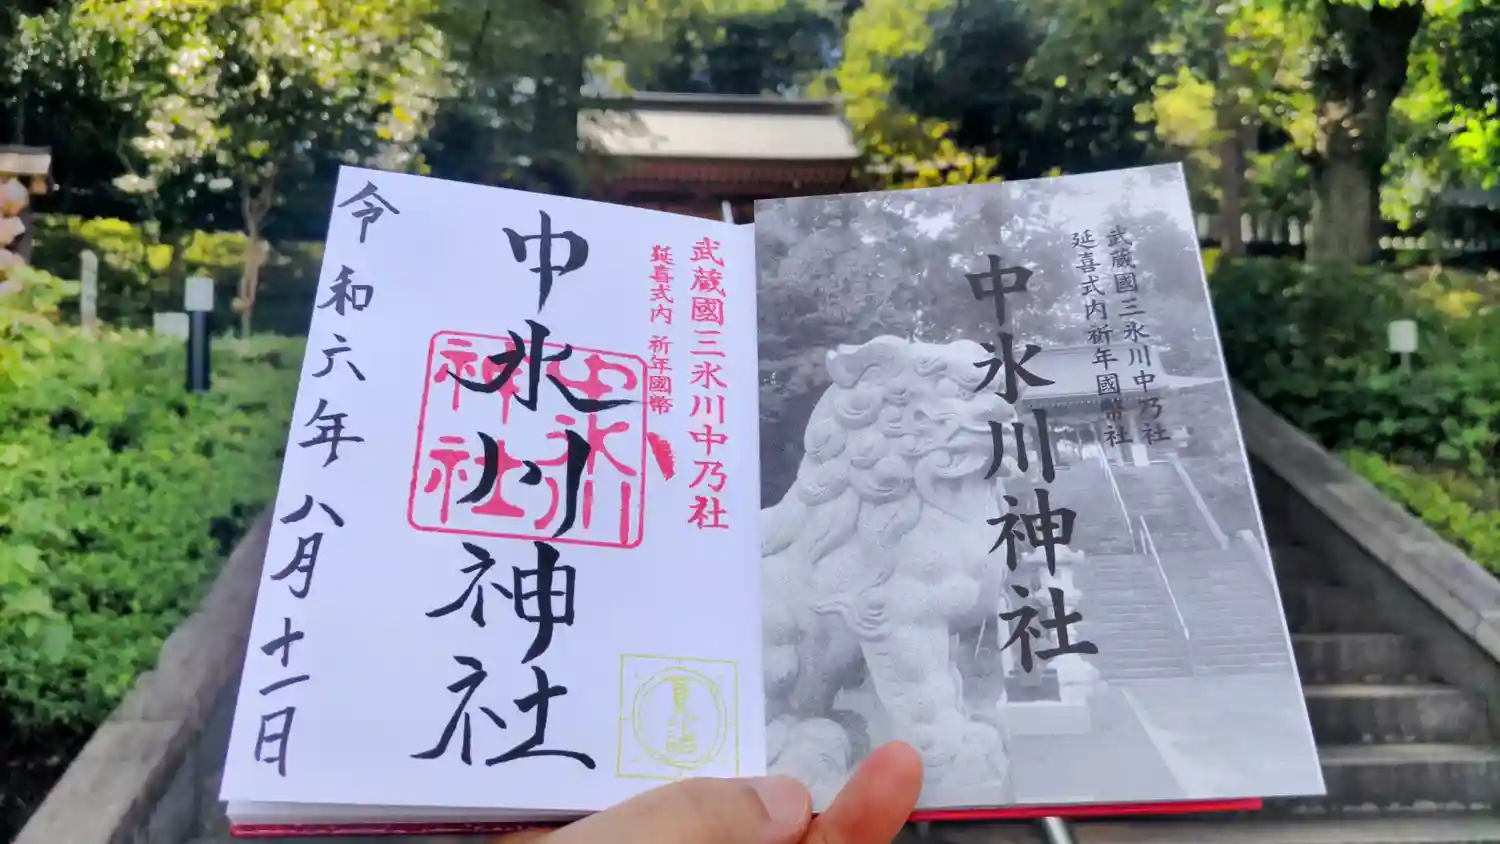 武蔵國三氷川中乃社
延喜式内 祈年國幣
中氷川神社
中氷川
神社
夏詣
令和六年八月十一日
武蔵國三氷川中乃社
延喜式内祈年國幣社
中氷川神社